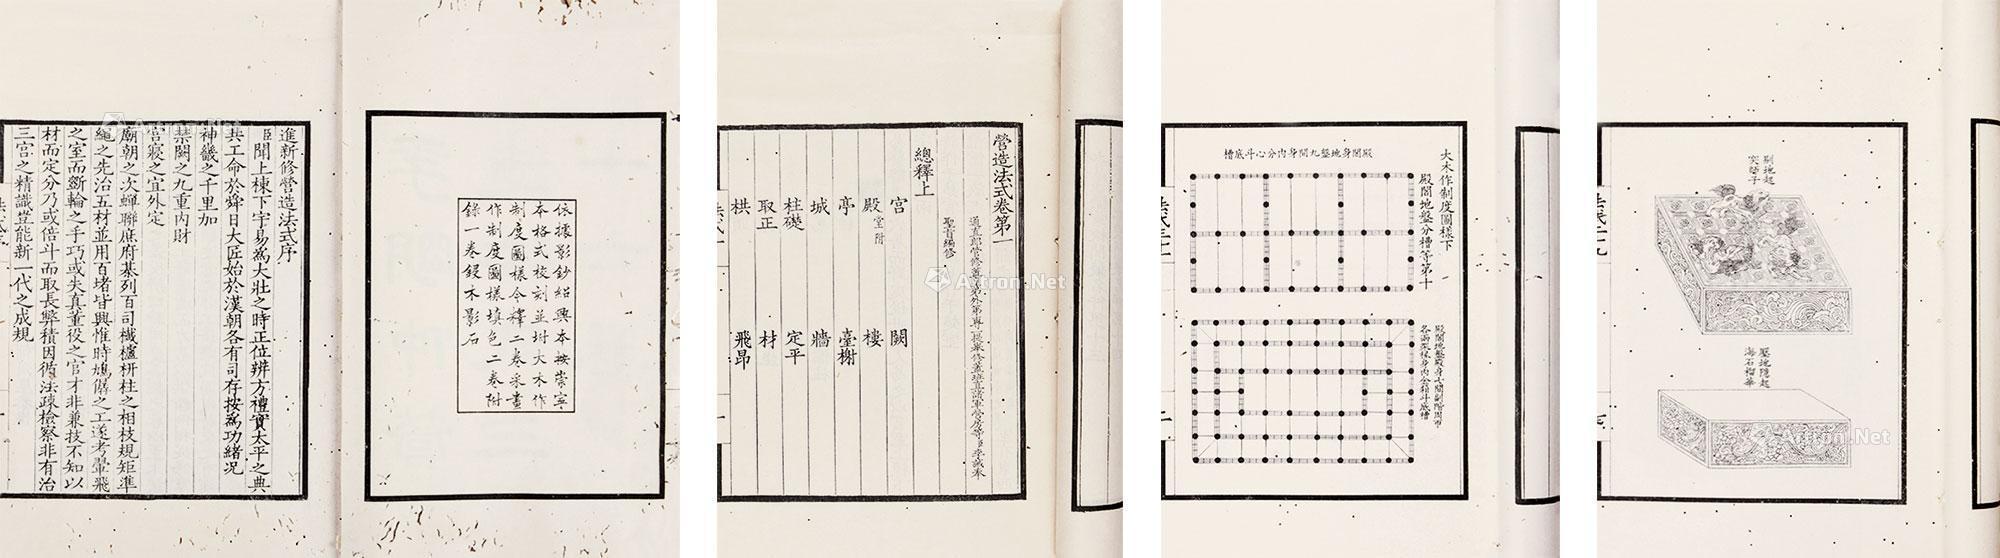 進新修營造法式序
臣聞上棟下宇易爲大壯之時正位辨方禮實太平之典
共工命於舜日大匠始於漢朝各有司存按爲功緒況
神畿之千里加
禁闕之九重内財
宮寢之宜外定
廟朝之次蟬聯庶府棊列百司欂櫨枅柱之相枝規矩準
繩之先治五材並用百堵皆興惟時鳩僝之工遂考翬飛
之室而斵輪之手巧或失真董役之官才非兼技不知以
材而定分乃或倍斗而取長弊積因循法疎檢察非有治
三宮之精識豈能新一代之成規
依據影鈔紹興本按崇寧
本格式校刻並坿大木作
制度圖樣今釋二卷采畫
作制度圖樣填色二卷附
錄一卷鋟木影石
營造法式卷第一
通直郎管修蓋皇弟外第專一提舉修蓋班直諸軍營房等臣李誡奉
聖旨編修
總釋上
宮 闕
殿 堂附 樓
亭 臺榭
城 牆
柱礎 定平
取正 材
栱 飛昂
大木作制度圖樣下
殿閣地盤分槽等第十
殿閣身地盤九間身内分心斗底槽
殿閣地盤殿身七間副階周帀
各兩架椽身内金箱斗底槽
剔地起
突獅子
壓地隱起
海石榴華
Artron.Net
Artron.Net
Artron.Net